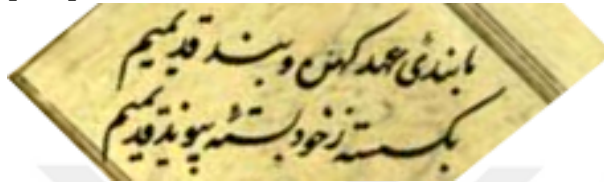 ما بندهٔ عهد کهن و بند قدیمیم
بگسسته ز خود بستهٔ پیوند قدیمیم